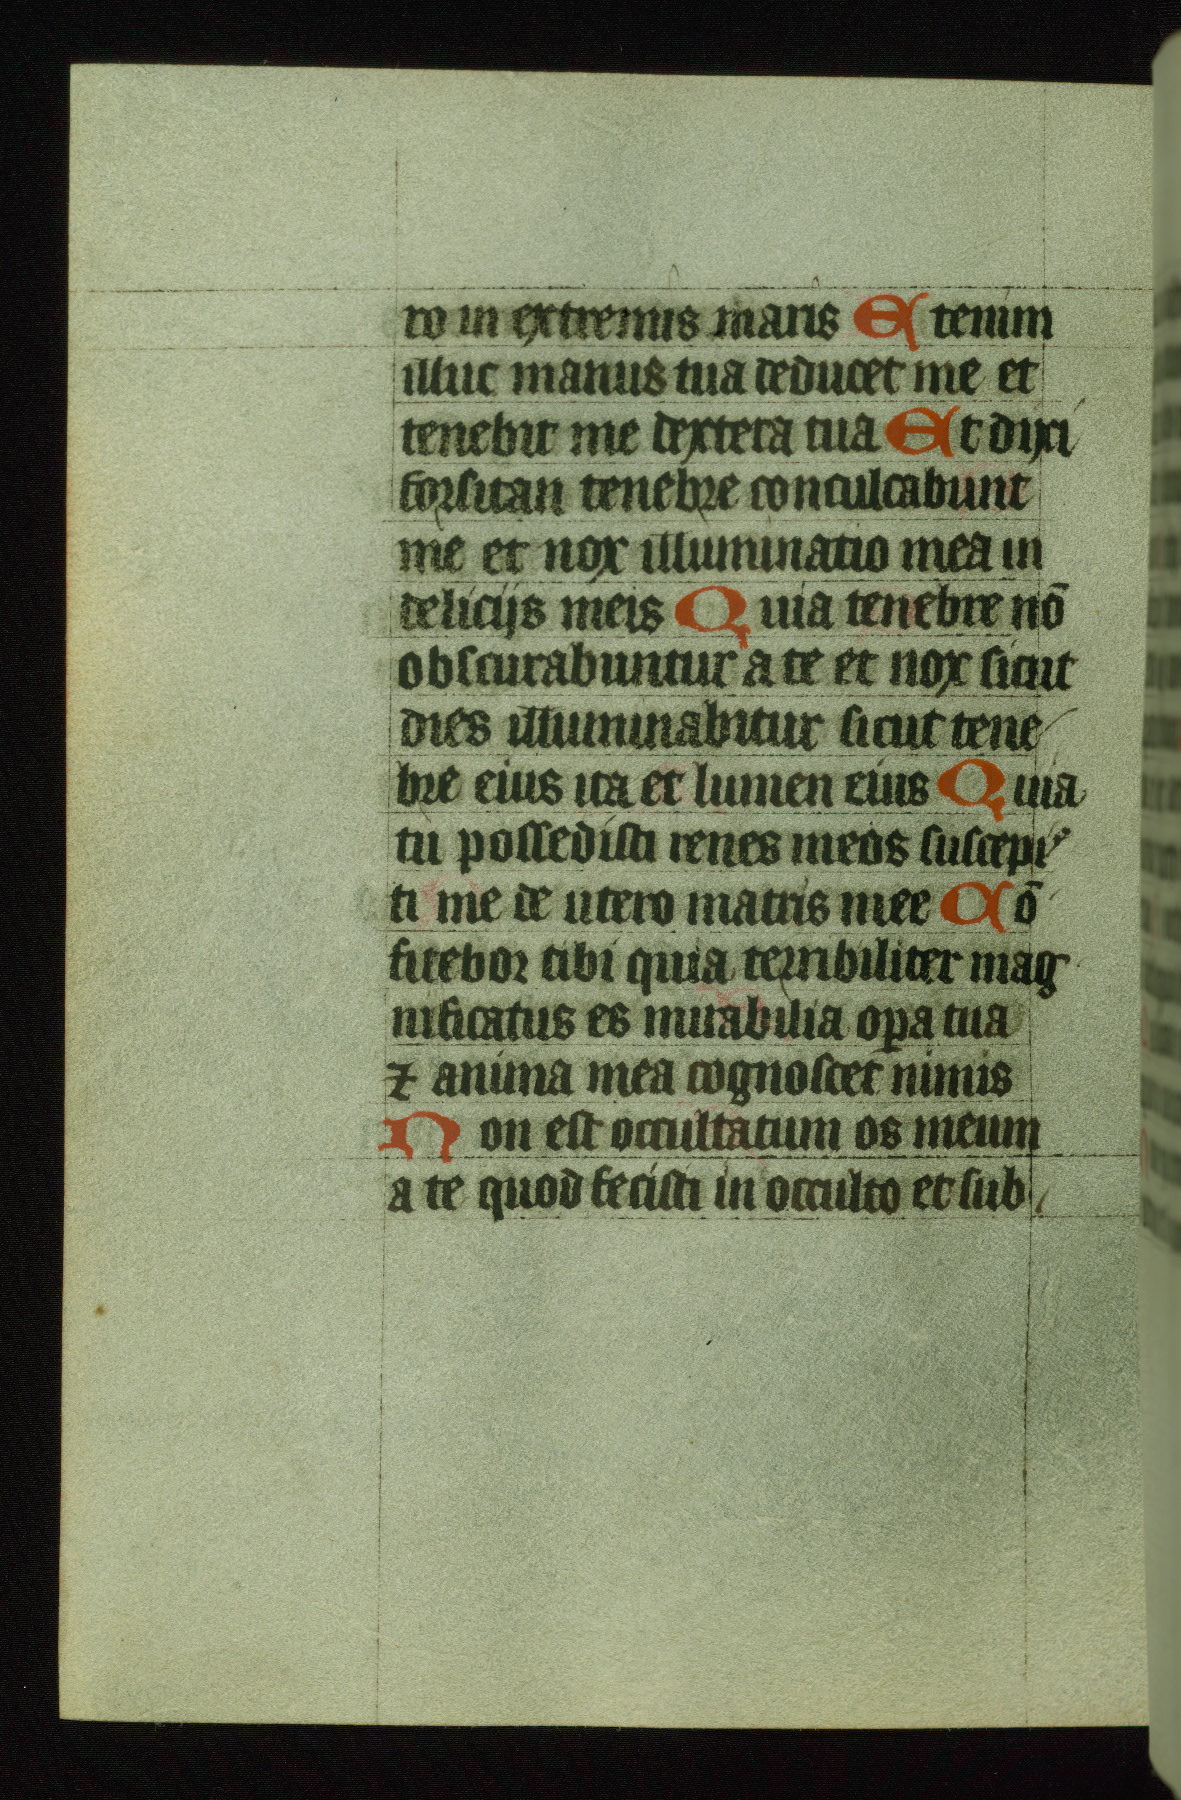 ro in extremis maris Et enim
illuc manus tua deducet me et
tenebit me dextera tua Et dixi
forsitan tenebre conculcabunt
me et nox illuminatio mea in
delicijs meis Quia tenebre nō
obscurabuntur a te et nox sicut
dies illuminabitur sicut tene
bre eius ita et lumen eius Quia
tu possedisti renes meos suscepi
ti me de utero matris mee Cō
fitebor tibi quia terribiliter mag
nificatus es mirabilia oꝑa tua
⁊ anima mea cognoscet nimis
Non est occultatum os meum
a te quod fecisti in occulto et sub